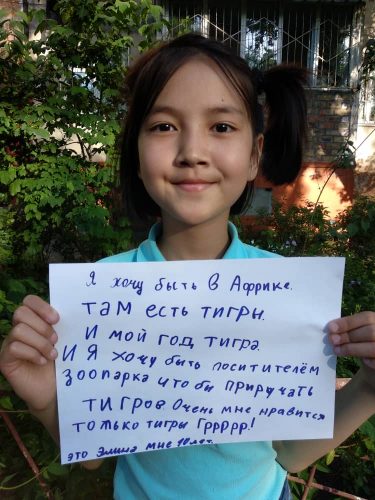 Я хочу быть в Африке.
там есть тигры.
И мой год тигра.
И Я хочу быть поситителём
зоопарка что бы приручать
тигров. Очень мне нравится
только тигры Гррррр.!
это Элина мне 10 лет.